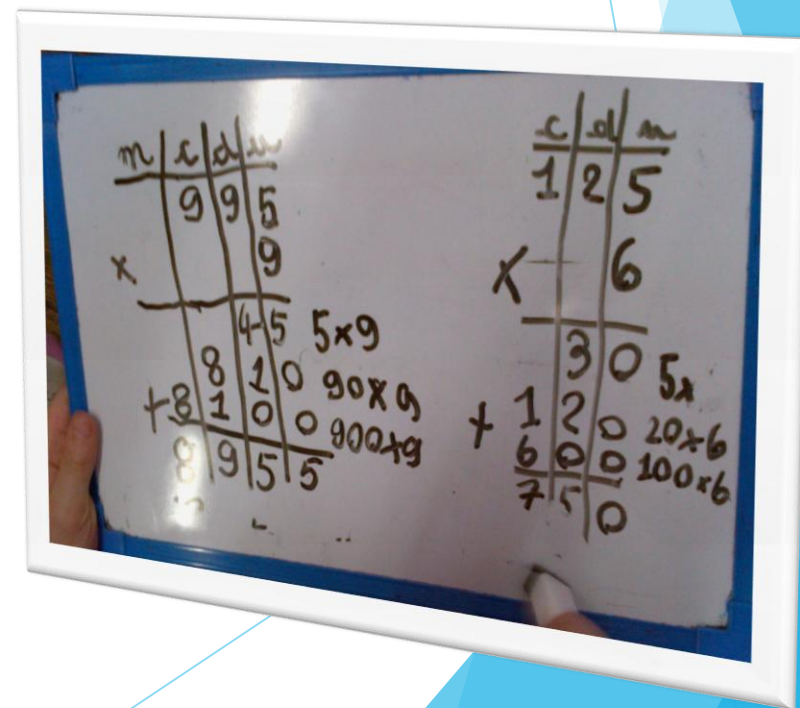 m c d u
9 9 5
x 9
45 5x9
8 1 0 90x9
+8 1 0 0 900x9
8 9 5 5
c d u
1 2 5
x 6
3 0 5x
+ 1 2 0 20x6
6 0 0 100x6
7 5 0